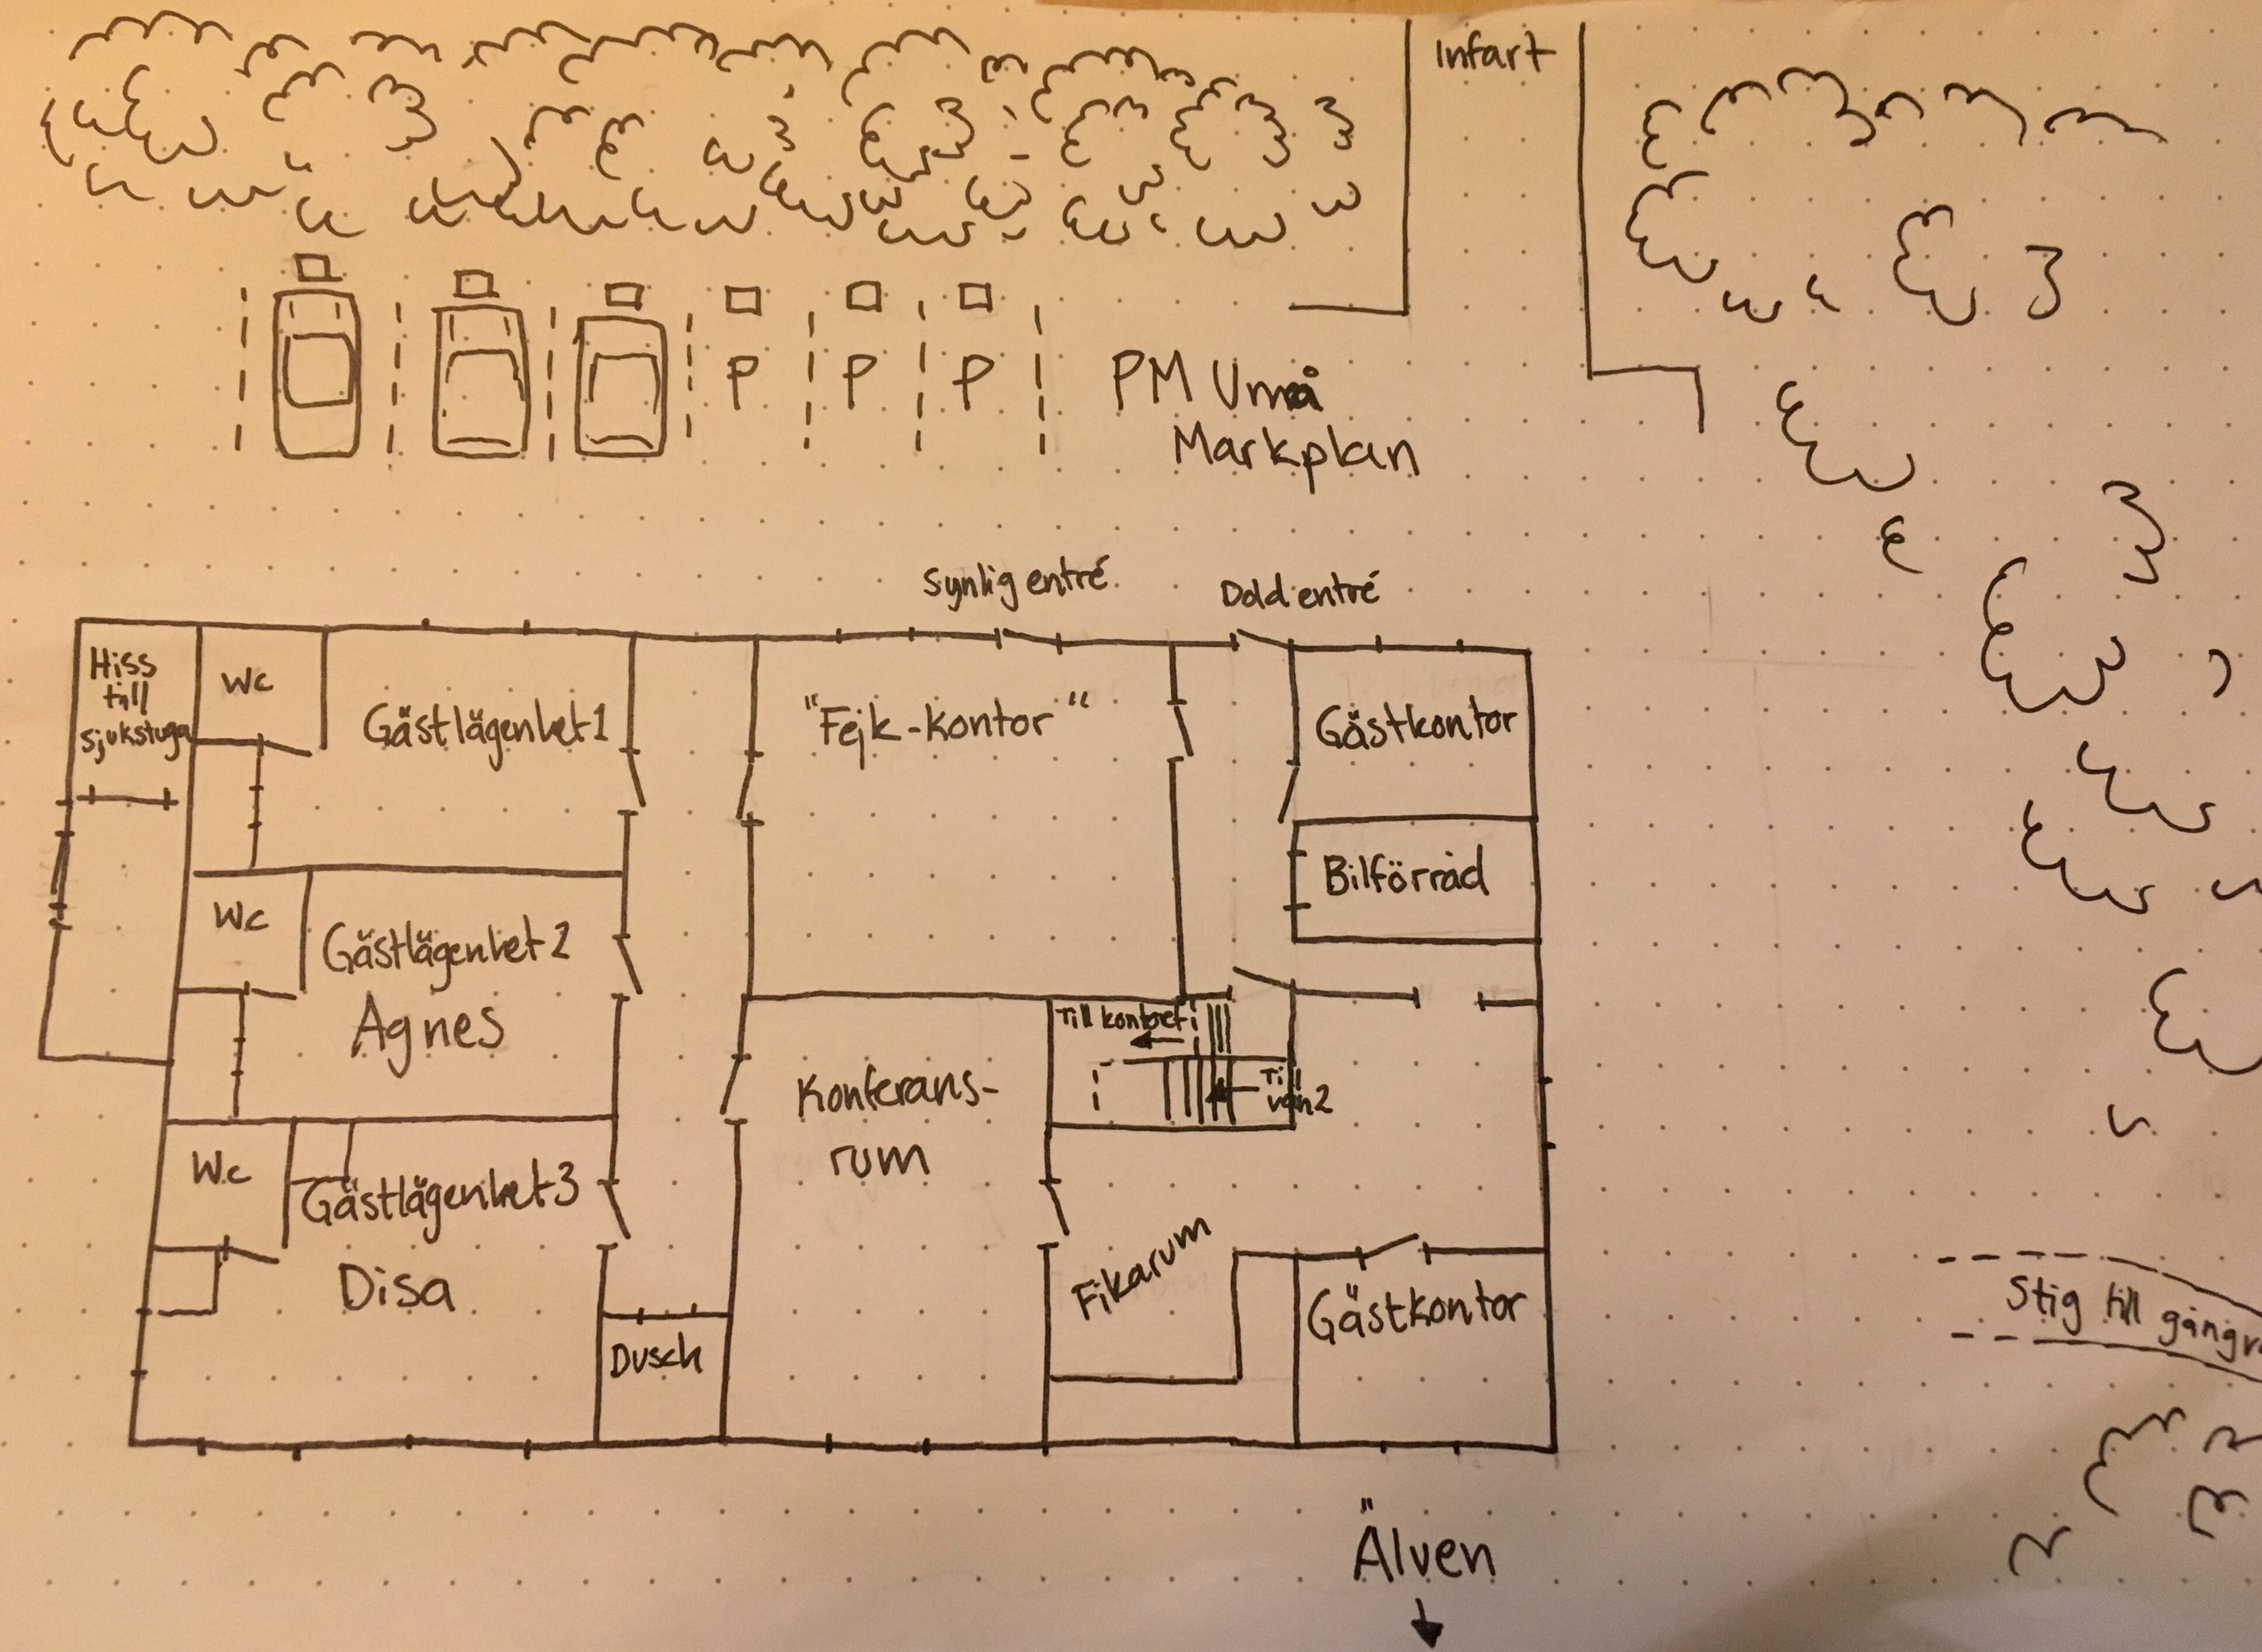 Infart
P P P
PM Umå
Markplan
Synlig entré
Dold entré
Hiss
till
sjukstuga
WC
Gästlägenhet 1
"Fejk-kontor"
Gästkontor
Bilförråd
WC
Gästlägenhet 2
Agnes
Till kontoret
Till
vån 2
Konferans-
rum
WC
Gästlägenhet 3
Disa
Dusch
Fikarum
Gästkontor
Stig till
Älven